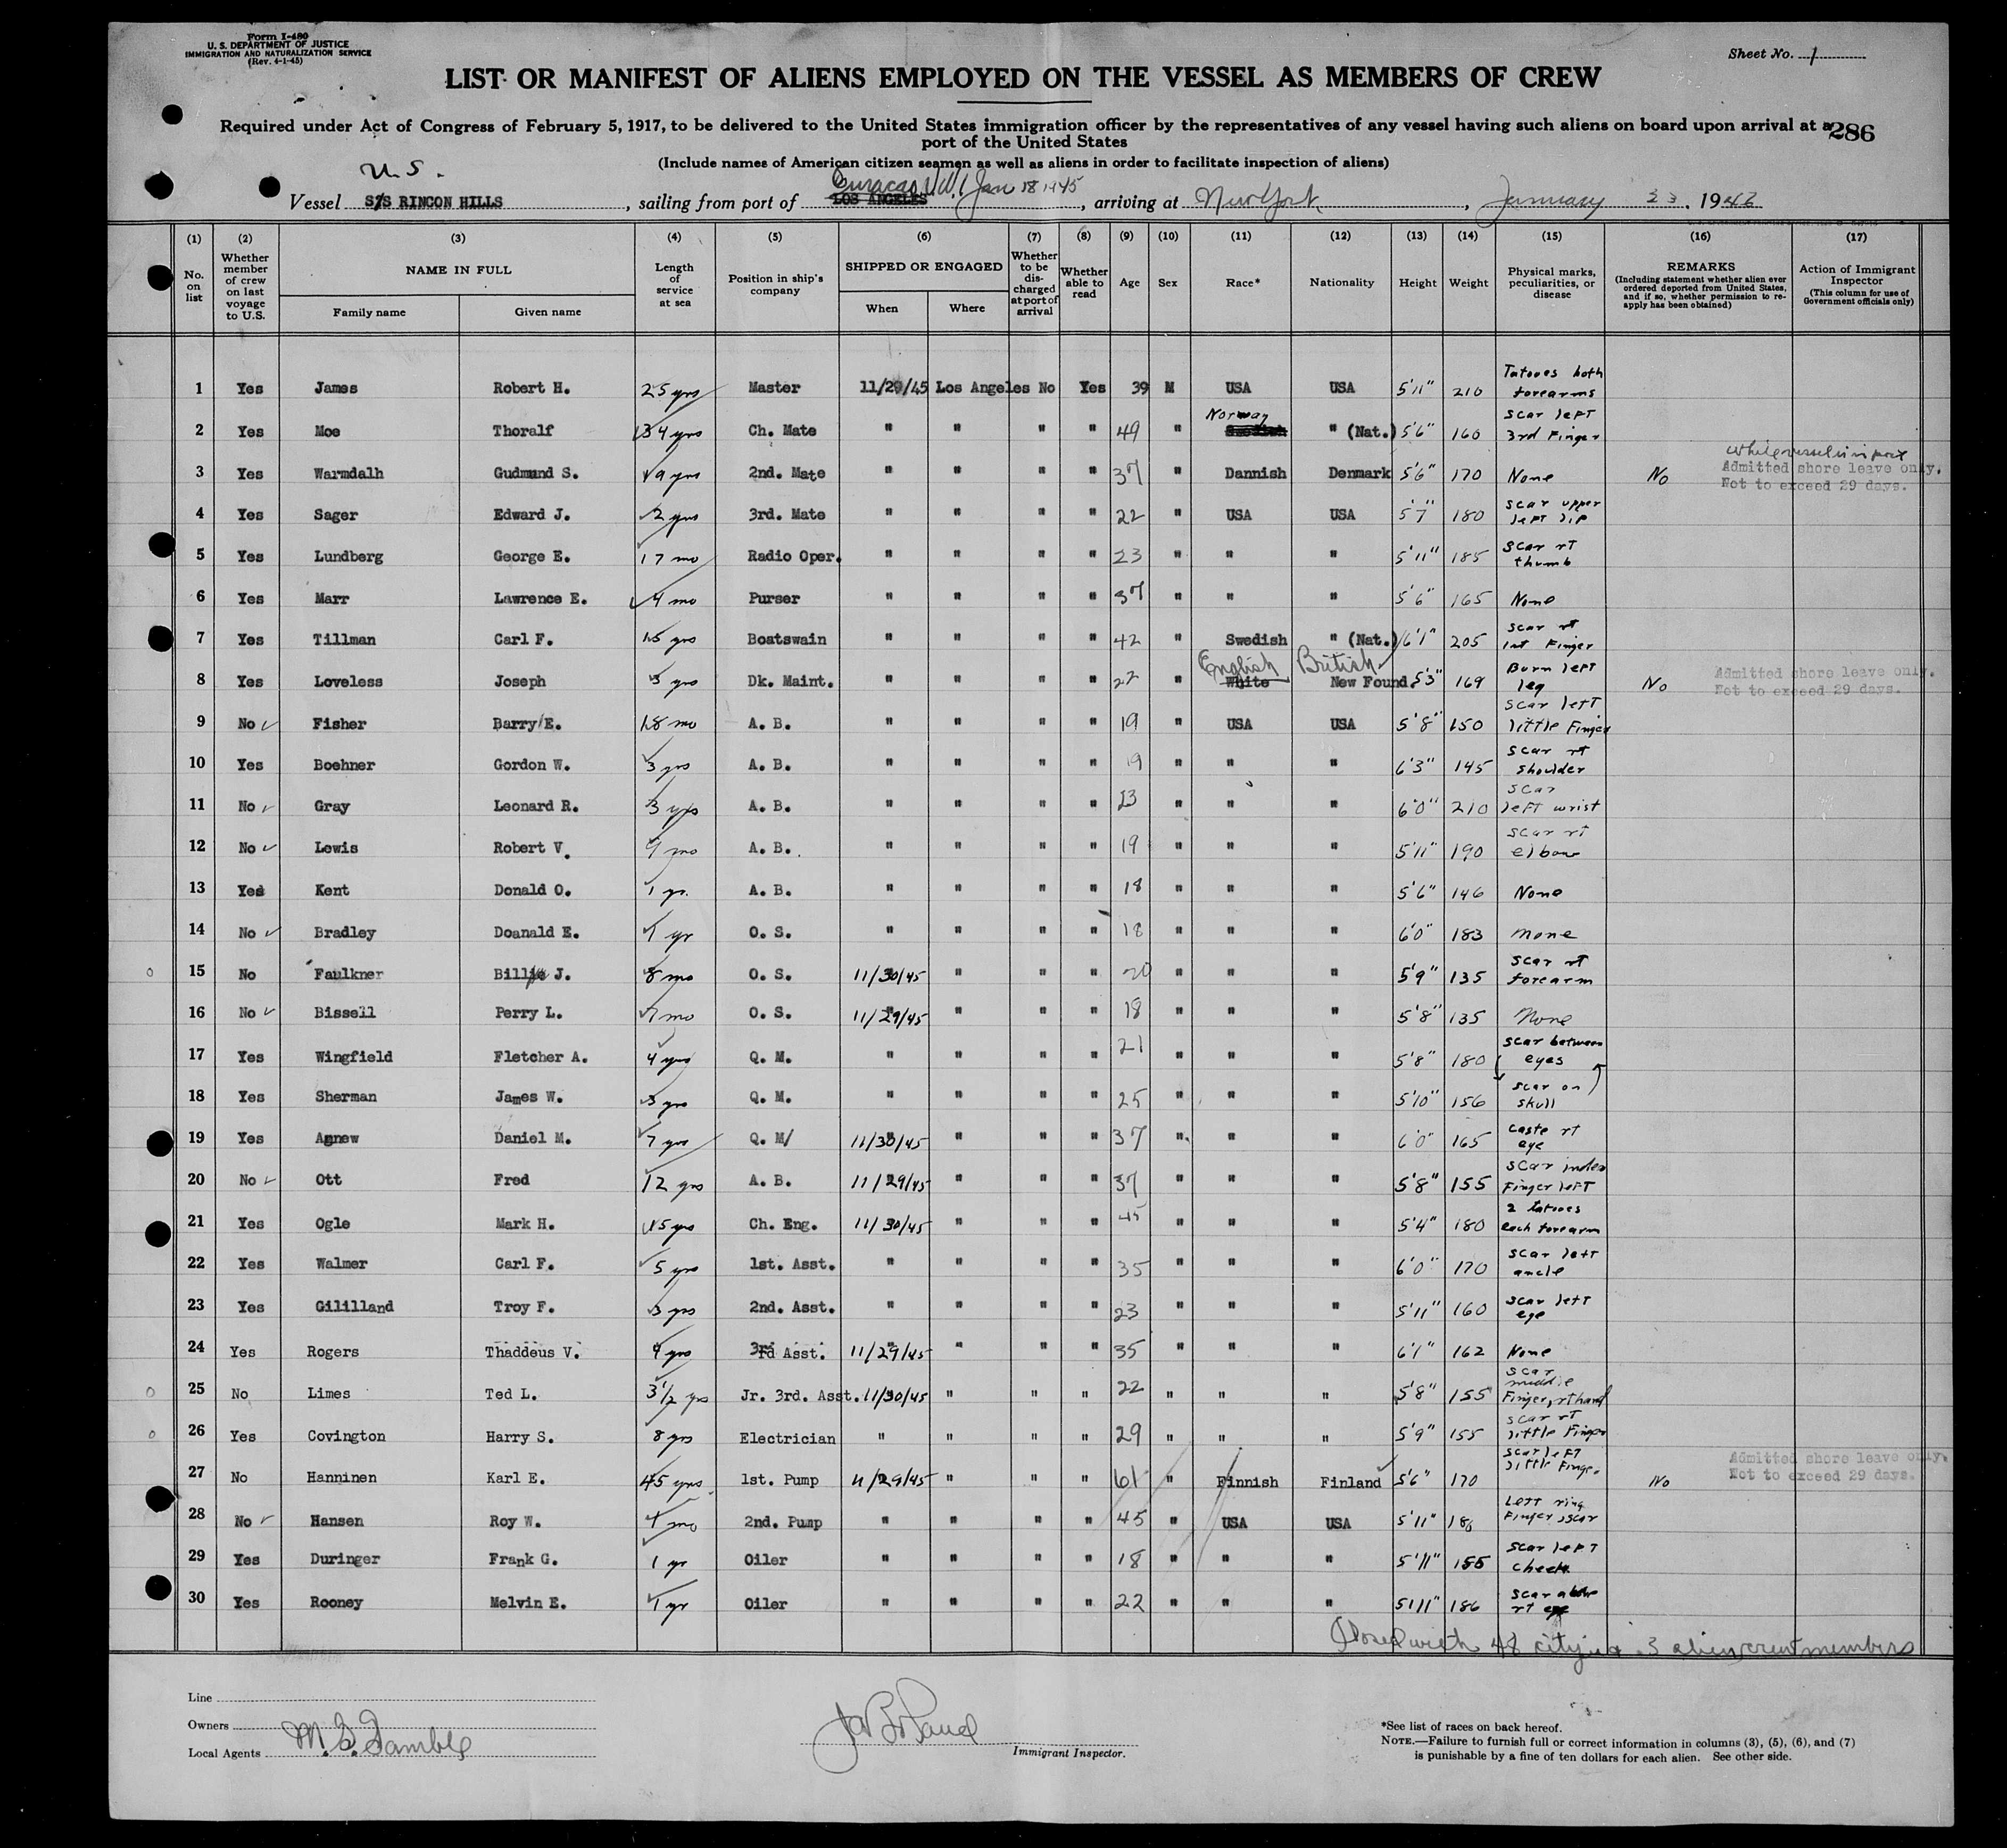 Form I-480
U. S. DEPARTMENT OF JUSTICE
IMMIGRATION AND NATURALIZATION SERVICE
(Rev. 4-1-45)
Sheet No. 1
LIST OR MANIFEST OF ALIENS EMPLOYED ON THE VESSEL AS MEMBERS OF CREW
Required under Act of Congress of February 5, 1917, to be delivered to the United States immigration officer by the representatives of any vessel having such aliens on board upon arrival at a
port of the United States
286
(Include names of American citizen seamen as well as aliens in order to facilitate inspection of aliens)
U.S.
Curacao Jan 18 1945
Vessel S/S RINCON HILLS, sailing from port of LOS ANGELES, arriving at New York, January 23, 1946
(1) (2) (3) (4) (5) (6) (7) (8) (9) (10) (11) (12) (13) (14) (15) (16) (17)
No. on list Whether member of crew on last voyage to U.S. NAME IN FULL Family name Given name Length of service at sea Position in ship's company SHIPPED OR ENGAGED When Where Whether to be discharged at port of arrival Whether able to read Age Sex Race* Nationality Height Weight Physical marks, peculiarities, or disease REMARKS (Including statement whether alien ever ordered deported from United States, and if so, whether permission to reapply has been obtained) Action of Immigrant Inspector (This column for use of Government officials only)
1 Yes James Robert H. 25 yrs Master 11/29/45 Los Angeles No Yes 39 M USA USA 5'11" 210 Tatooes both forearms
2 Yes Moe Thoralf 34 yrs Ch. Mate " " " " 49 " Norway Swedish " (Nat.) 5'6" 160 scar left 3rd Finger
3 Yes Warmdalh Gudmund S. 9 yrs 2nd. Mate " " " " 37 " Dannish Denmark 5'6" 170 None No while vessel is in port Admitted shore leave only. Not to exceed 29 days.
4 Yes Sager Edward J. 2 yrs 3rd. Mate " " " " 22 " USA USA 5'7" 180 scar upper left lip
5 Yes Lundberg George E. 17 mo Radio Oper. " " " " 23 " " " 5'11" 185 scar rt thumb
6 Yes Marr Lawrence E. 4 mo Purser " " " " 37 " " " 5'6" 165 None
7 Yes Tillman Carl F. 15 yrs Boatswain " " " " 42 " Swedish " (Nat.) 6'1" 205 scar rt 1st Finger
8 Yes Loveless Joseph 3 yrs Dk. Maint. " " " " 22 " English White British New Found. 5'3" 169 Burn left leg No Admitted shore leave only. Not to exceed 29 days.
9 No Fisher Barry E. 18 mo A. B. " " " " 19 " USA USA 5'8" 150 scar left little Finger
10 Yes Boehner Gordon W. 3 yrs A. B. " " " " 19 " " " 6'3" 145 scar rt shoulder
11 No Gray Leonard R. 3 yrs A. B. " " " " 23 " " " 6'0" 210 scar left wrist
12 No Lewis Robert V. 9 mo A. B. " " " " 19 " " " 5'11" 190 scar rt elbow
13 Yes Kent Donald O. 1 yr. A. B. " " " " 18 " " " 5'6" 146 None
14 No Bradley Doanald E. 1 yr O. S. " " " " 18 " " " 6'0" 183 none
15 No Faulkner Billie J. 8 mo O. S. 11/30/45 " " " 20 " " " 5'9" 135 scar rt forearm
16 No Bissell Perry L. 7 mo O. S. 11/29/45 " " " 18 " " " 5'8" 135 None
17 Yes Wingfield Fletcher A. 4 yrs Q. M. " " " " 21 " " " 5'8" 180 scar between eyes
18 Yes Sherman James W. 3 yrs Q. M. " " " " 25 " " " 5'10" 156 scar on skull
19 Yes Agnew Daniel M. 7 yrs Q. M/ 11/30/45 " " " 37 " " " 6'0" 165 caste rt eye
20 No Ott Fred 12 yrs A. B. 11/29/45 " " " 37 " " " 5'8" 155 scar index Finger left
21 Yes Ogle Mark H. 15 yrs Ch. Eng. 11/30/45 " " " 45 " " " 5'4" 180 2 tatooes each forearm
22 Yes Walmer Carl F. 5 yrs 1st. Asst. " " " " 35 " " " 6'0" 170 scar left ancle
23 Yes Gililland Troy F. 3 yrs 2nd. Asst. " " " " 23 " " " 5'11" 160 scar left eye
24 Yes Rogers Thaddeus V. 4 yrs 3rd Asst. 11/29/45 " " " 35 " " " 6'1" 162 None
25 No Limes Ted L. 3 1/2 yrs Jr. 3rd. Asst. 11/30/45 " " " 22 " " " 5'8" 155 scar middle Finger, rt hand
26 Yes Covington Harry S. 8 yrs Electrician " " " " 29 " " " 5'9" 155 scar rt little Finger
27 No Hanninen Karl E. 45 yrs 1st. Pump 11/29/45 " " " 61 " Finnish Finland 5'6" 170 scar left little Finger No Admitted shore leave only. Not to exceed 29 days.
28 No Hansen Roy W. 4 mo 2nd. Pump " " " " 45 " USA USA 5'11" 186 Left ring Finger, scar
29 Yes Duringer Frank G. 1 yr Oiler " " " " 18 " " " 5'11" 155 scar left cheek
30 Yes Rooney Melvin E. 1 yr Oiler " " " " 22 " " " 5'11" 186 scar above rt eye
Closed with 48 citizens 3 alien crew members
Line
Owners
Local Agents M. G. Gamble
Immigrant Inspector.
*See list of races on back hereof.
NOTE.—Failure to furnish full or correct information in columns (3), (5), (6), and (7)
is punishable by a fine of ten dollars for each alien. See other side.